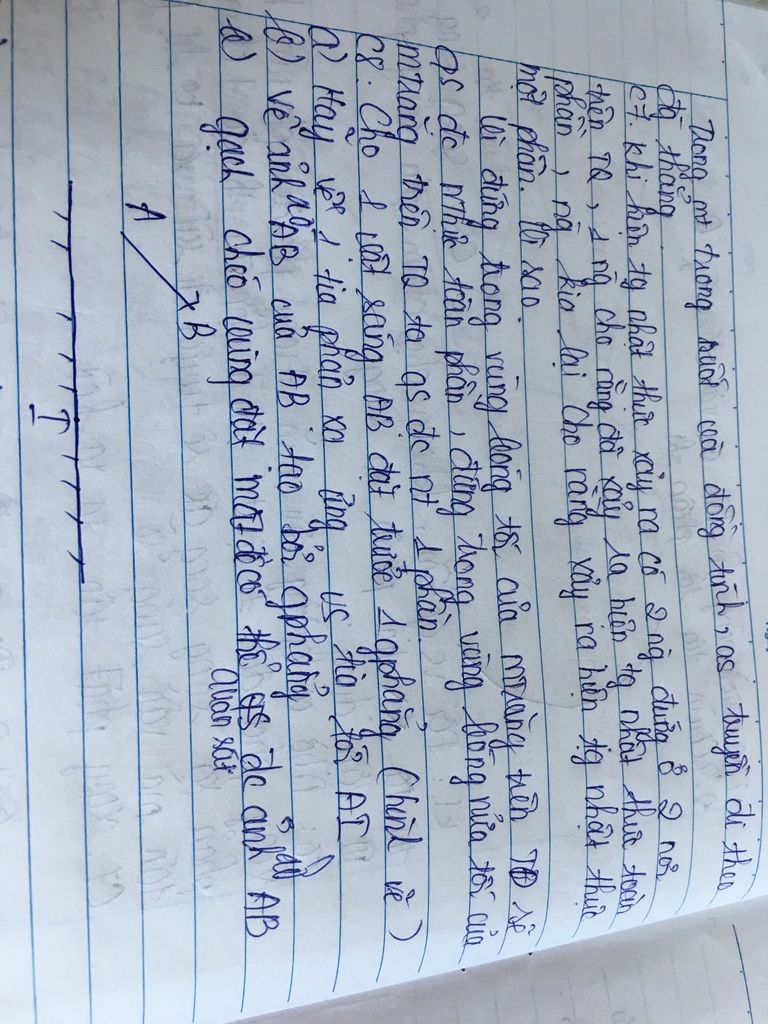 Trong mt trong suốt và đồng tính, as truyền đi theo
đg thẳng
C7. Khi hiện tg nhật thực xảy ra có 2 ng đứng ở 2 nơi
trên TĐ, 1 ng cho rằng đã xảy ra hiện tg nhật thực toàn
phần, ng kia lại cho rằng xảy ra hiện tg nhật thực
một phần. Vì sao.
Vì đứng trong vùng bóng tối của mtrăng trên TĐ sẽ
qs đc nhật thực toàn phần, đứng trong vùng bóng nửa tối của
mtrăng trên TĐ ta qs đc nt 1 phần
C8. Cho 1 vật sáng AB đặt trước 1 gphẳng (hình vẽ)
a) Hãy vẽ 1 tia phản xạ ứng vs tia tới AI
b) vẽ ảnh AB của AB tạo bởi gphẳng
c) gạch chéo vùng đặt mắt để có thể qs đc ảnh AB
quan sát
A
B
I